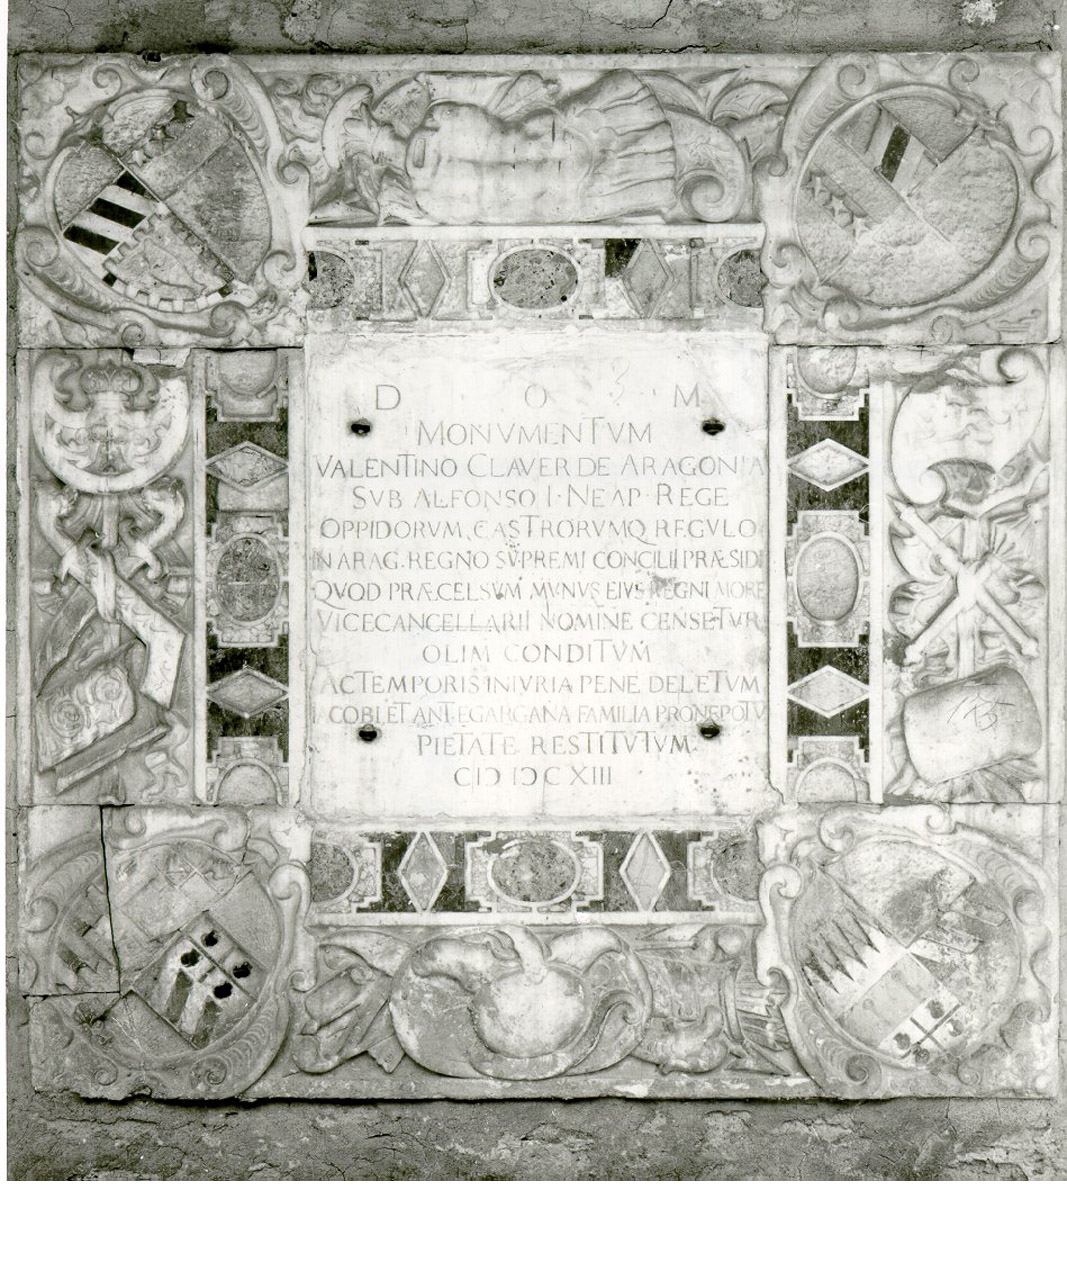 D O M
MONVMENTVM
VALENTINO CLAVER DE ARAGONIA
SVB ALFONSO I · NEAP · REGE
OPPIDORVM, CASTRORVMQ REGVLO
IN ARAG. REGNO SVPREMI CONCILII PRÆSIDI
QVOD PRÆCELSVM MVNVS EIVS REGNI MORE
VICECANCELLARII NOMINE CENSETVR
OLIM CONDITVM
AC TEMPORIS INIVRIA PENE DELETVM
IACOBI ET ANT. EGARGANA FAMILIA PRONEPOTV
PIETATE RESTITVTVM
CIↃ IↃC XIII